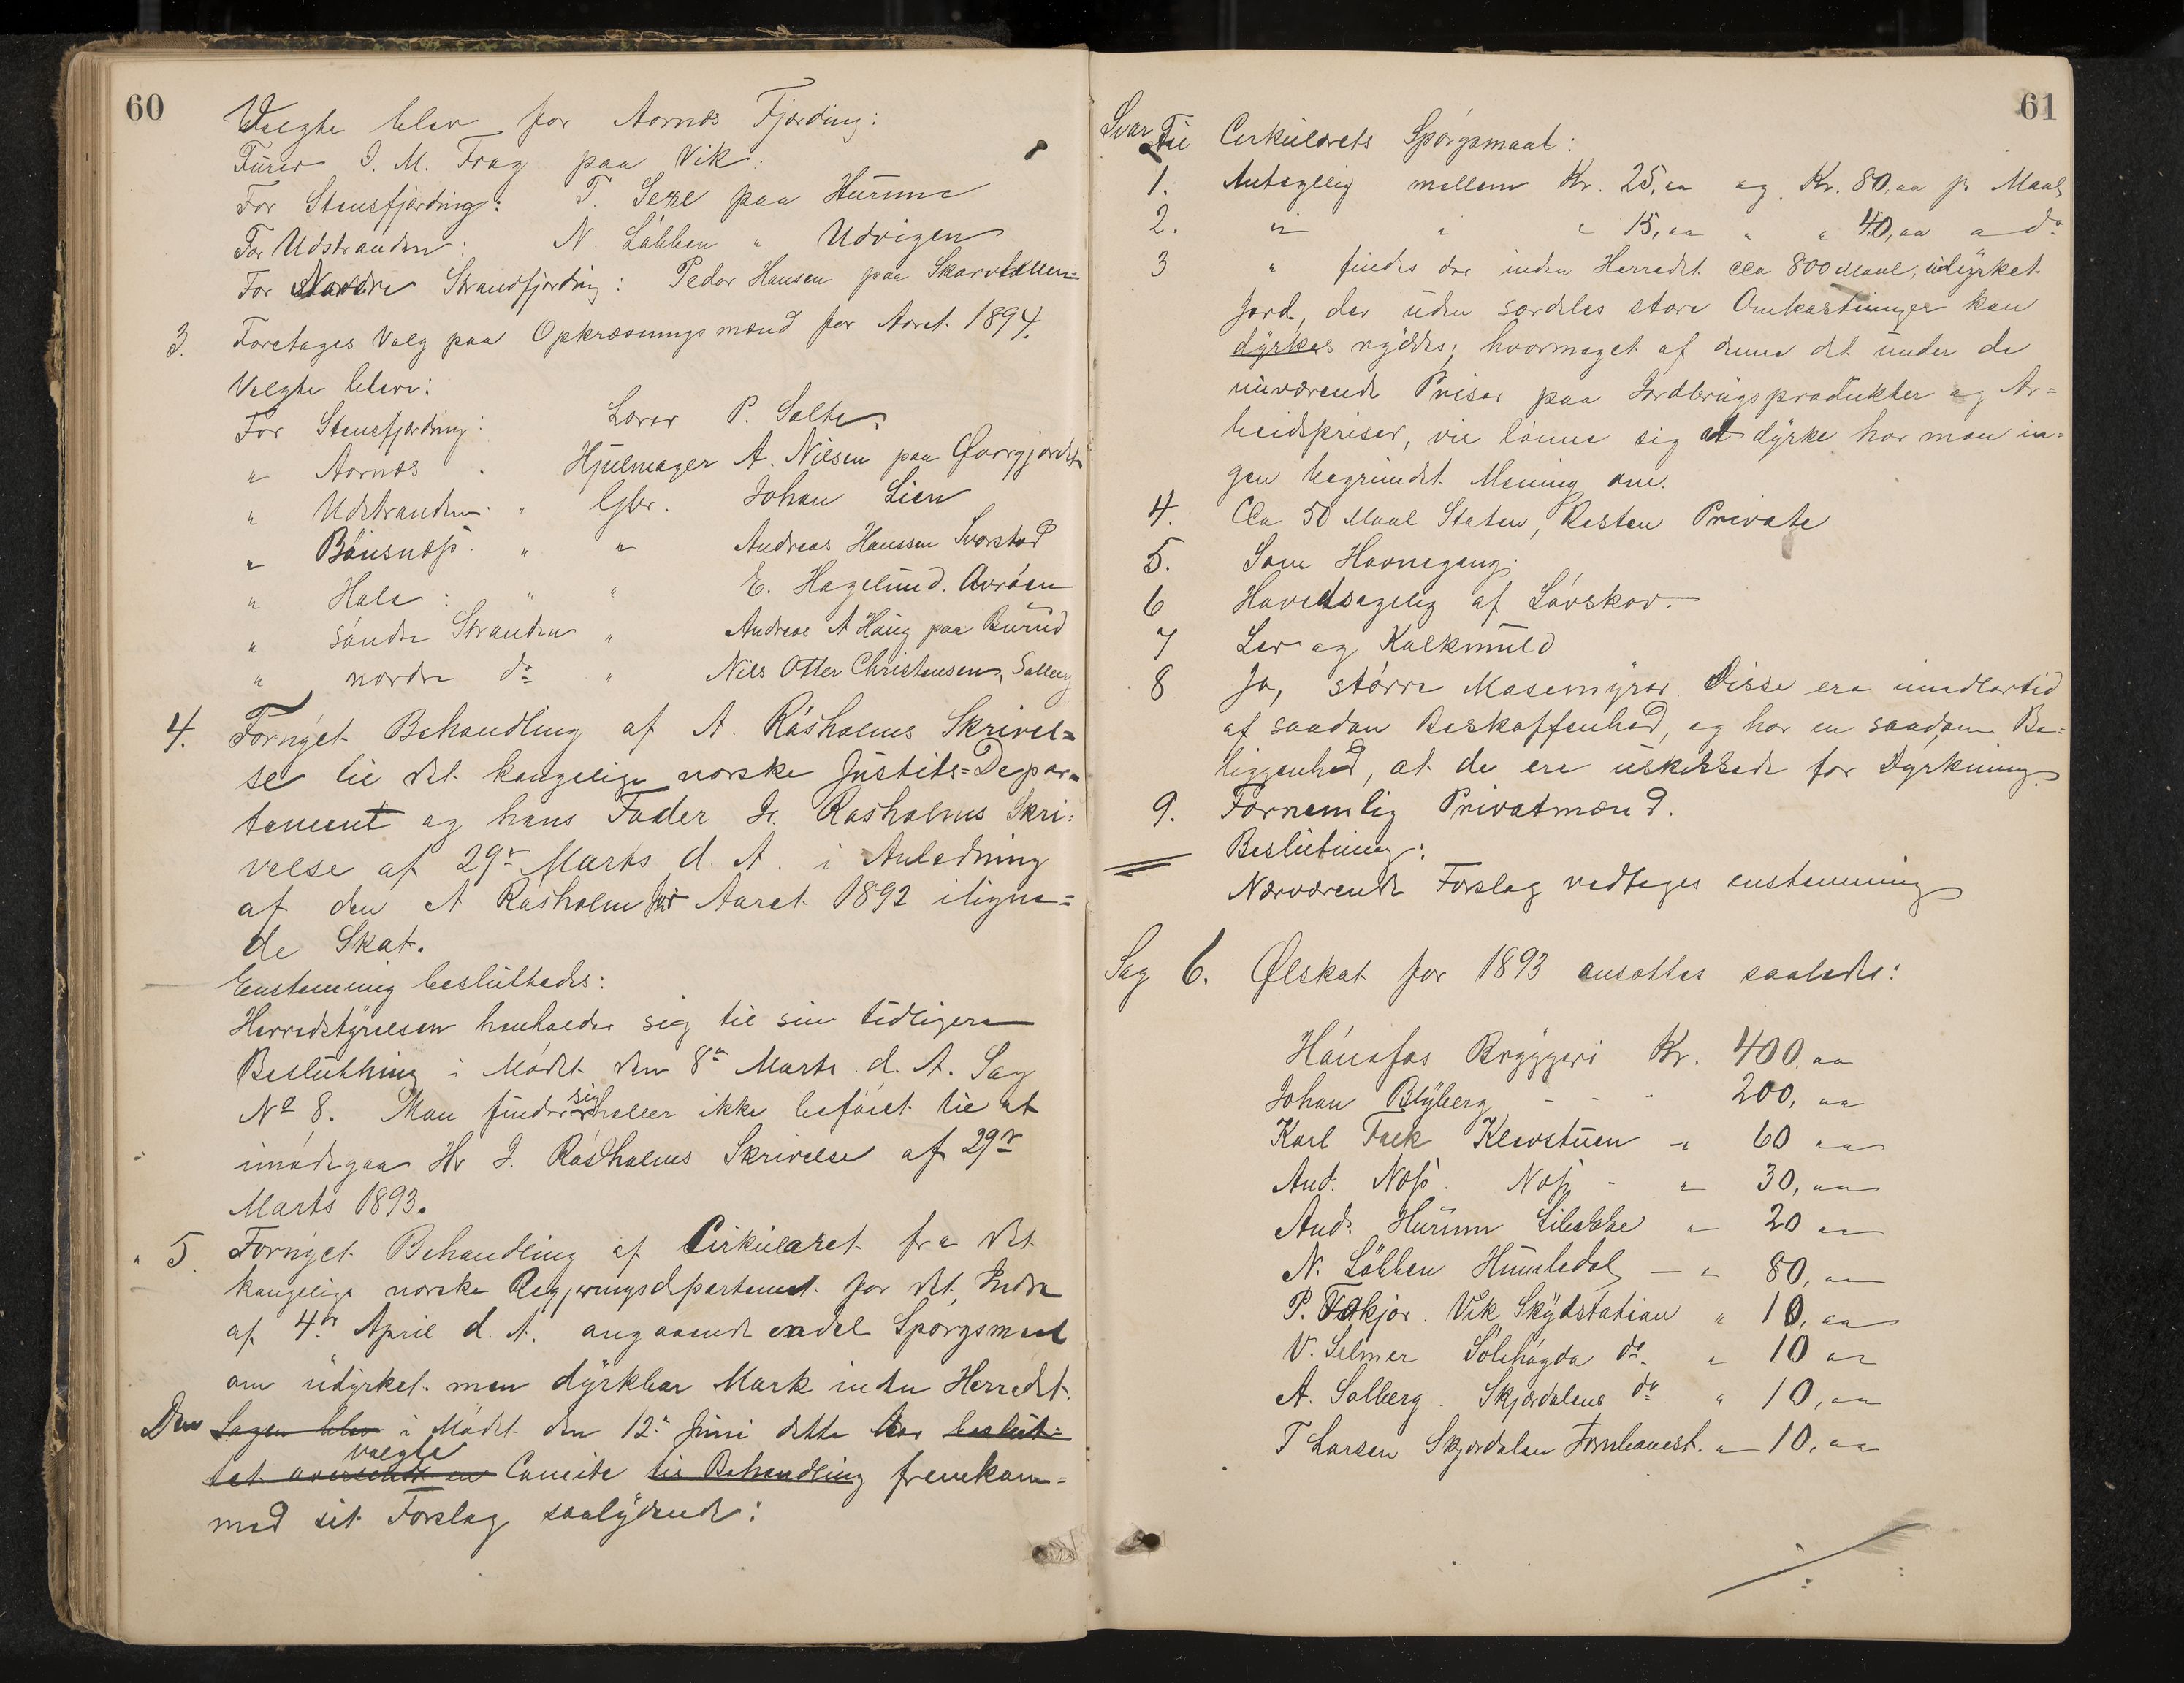 60
Valgte blev for Aarnæs Fjærding:
Furer I. M. Frog paa Vik.
For Stensfjærding: T. Sexe paa Hurum
For Udstranden: N. Løbben " Udvigen
For Nordre Strandfjærding: Peder Hansen paa
3. Foretages Valg paa Opkrævningsmænd for Aaret 1894.
Valgte bleve:
For Stensfjærding: Lærer P. Solte.
" Aarnæs " Hjulmager A. Nilsen paa
" Udstranden " Gbr. Johan Lien
" Bönsnæss " " Andreas Hanssen Svarstad
" Hole : " " E. Hagelund. Avröen
" söndre Stranden " Andreas A Haug paa Burud
" nordre do " Nils Otter Christensen, Solberg
4. Fornyet Behandling af A. Råsholms Skrivel=
se til det kongelige norske Justits=Depar=
tement og hans Fader J. Rosholms Skri=
velse af 29de Marts d. A. i Anledning
af den A Rösholm for Aaret 1892 iligne=
de Skat.
Enstemmig besluttedes:
Herredstyrelsen henholder sig til sin tidligere
Beslutning i Mödet den 8de Marts d. A. Sag
No 8. Man finder sig heller ikke beföiet til at
imödegaa Hr J. Rösholms Skrivelse af 29de
Marts 1893.
" 5. Fornyet Behandling af Cirkulæret fra det
kongelige norske Regjeringsdepartement for det Indre
af 4de April d. A. angaaende endel Spörgsmaal
om udyrket men dyrkbar Mark inden Herredet.
Den Sagen blev i Mödet den 12te Juni dette Aar beslut=
valgte
tet oversendt en Comite til Behandling fremkom=
med sit Forslag saalydende:
61
Svar Til Cirkulærets Spörgsmaal:
1. Antagelig mellem Kr. 25,00 og Kr. 80,00 pr Maal
2. " " " 15,00 " " 40,00 " do
3 " findes der inden Herredet cca 800 Maal, udyrket
Jord, der uden særdeles store Omkostninger kan
dyrkes ryddes; hvormeget af denne det under de
nuværende Priser paa Jordbrugsprodukter og Ar=
beidspriser, vil lönne sig at dyrke har man in=
gen begrundet Mening om.
4. Cca 50 Maal Staten, Resten Private
5. Som Havnegang.
6 Hovedsagelig af Lövskov.
7 Ler og Kalkmuld
8 Ja, större Mosemyrer. Disse ere imidlertid
af saadan Beskaffenhed, og har en saadan Be=
liggenhed, at de ere uskikkede for Dyrkning.
9. Fornemlig Privatmænd.
Beslutning:
Nærværende Forslag vedtages enstemmig
Sag 6. Ølskat for 1893 ansattes saaledes:
Hönefos Bryggeri Kr. 400.00
Johan Blyberg - - - 200,00
Karl Falk Klevstuen - " 60 00
And. Næss. Næss - " 30,00
Andr. Hurum Libakke " 20 00
N. Löbben Humledal — " 80,00
P. Vik Skydsstation " 10,00
V. Selmer Sölihögda do. " 10 00
A. Solberg. Skjærdalens do " 10,00
T Larsen Skjærdalen Jernbanest. " 10,00